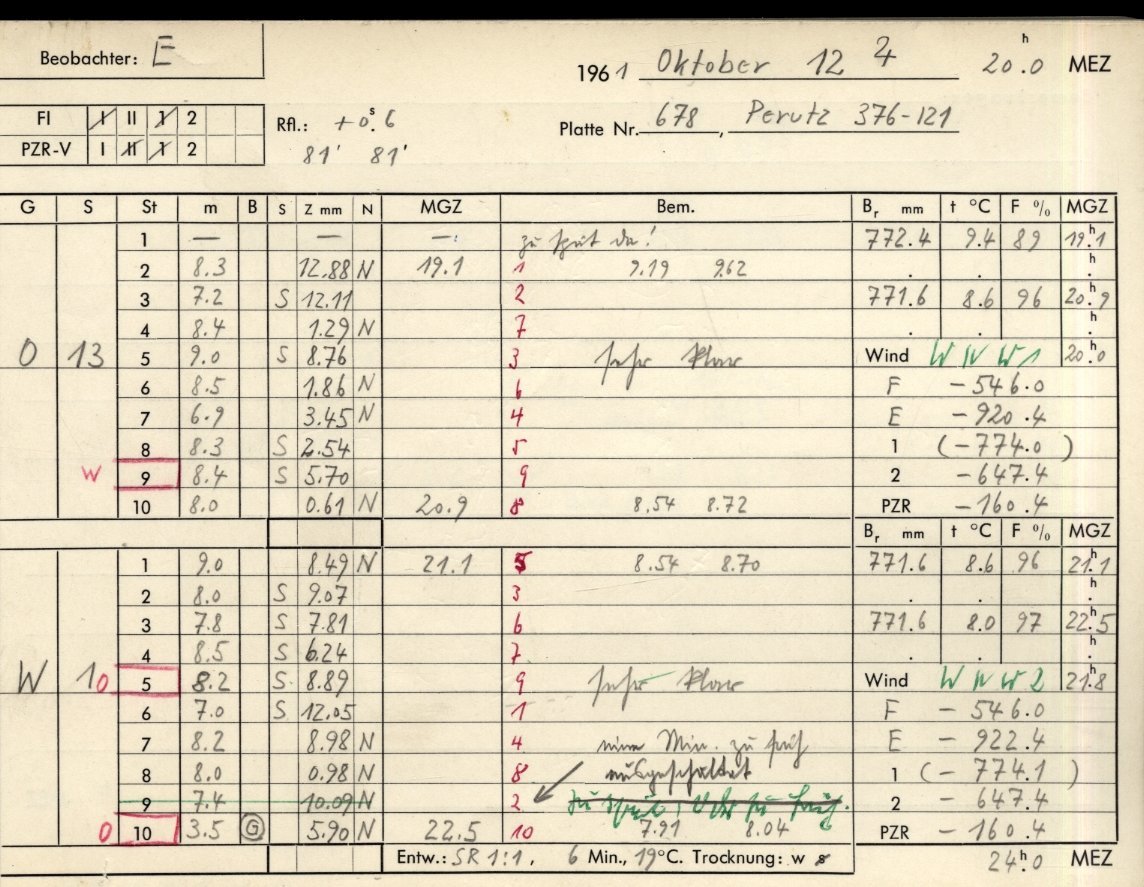 Beobachter: E
1961 Oktober 12 4 20h.0 MEZ
FI I II 1 2
PZR-V I II 1 2
Rfl.: +0s.6
81' 81'
Platte Nr. 678, Perutz 376-121
G S St m B S Z mm N MGZ Bem. Br mm t °C F % MGZ
1 — — — zu spät da! 772.4 9.4 89 19h.1
2 8.3 12.88 N 19.1 1 9.19 9.62 . . h.
3 7.2 S 12.11 2 771.6 8.6 96 20h.9
4 8.4 1.29 N 7 . . h.
O 13 5 9.0 S 8.76 3 sehr klar Wind W N W 1 20h.0
6 8.5 1.86 N 6 F -546.0
7 6.9 3.45 N 4 E -920.4
8 8.3 S 2.54 5 1 (-774.0)
W 9 8.4 S 5.70 9 2 -647.4
10 8.0 0.61 N 20.9 8 8.54 8.72 PZR -160.4
Br mm t °C F % MGZ
1 9.0 8.49 N 21.1 5 8.54 8.70 771.6 8.6 96 21h.1
2 8.0 S 9.07 3 . . h.
3 7.8 S 7.81 6 771.6 8.0 97 22h.5
4 8.5 S 6.24 7 . . h.
W 10 5 8.2 S 8.89 9 sehr klar Wind W N W 2 21h.8
6 7.0 S 12.05 1 F - 546.0
7 8.2 8.98 N 4 eine Min. zu früh E - 922.4
8 8.0 0.98 N 8 ausgeschaltet 1 (- 774.1)
9 7.4 10.09 N 2 zu spät, Uhr zu früh. 2 - 647.4
O 10 3.5 G 5.90 N 22.5 10 7.91 8.04 PZR - 160.4
Entw.: SR 1:1, 6 Min., 19°C. Trocknung: w 24h.0 MEZ